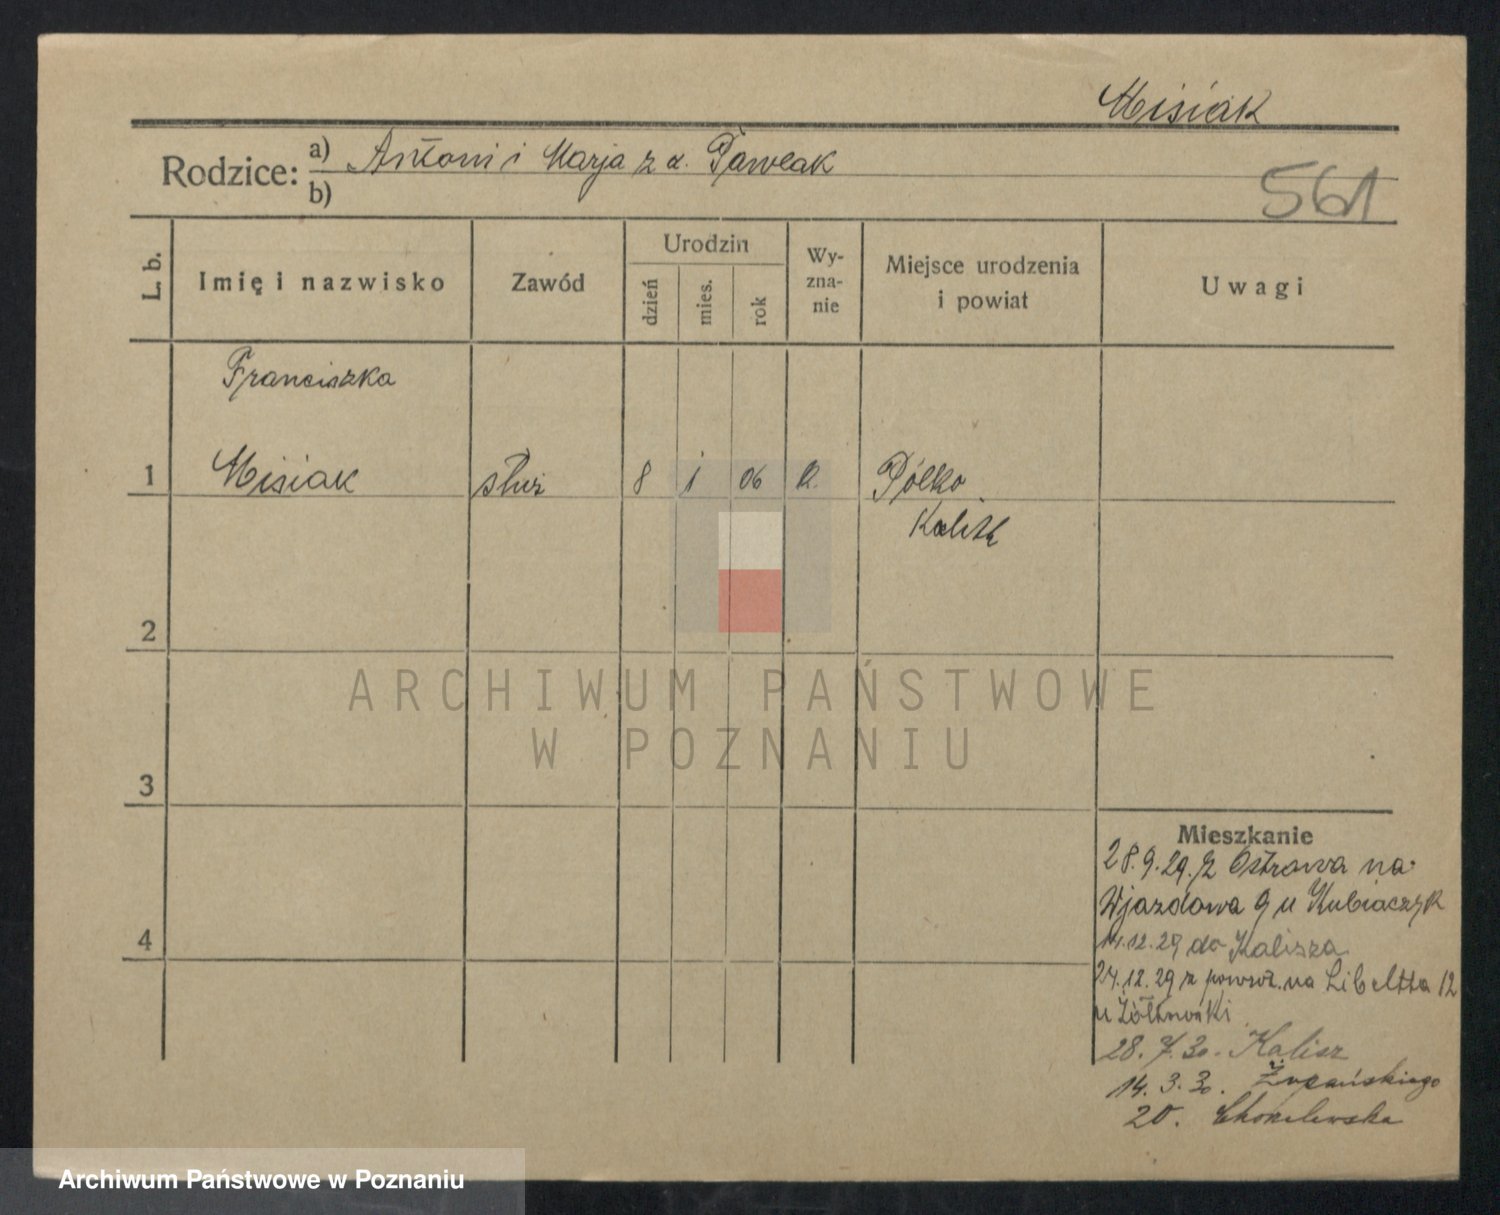 Misiak
Rodzice: a) Antoni i Marja z d. Pawlak
b)
561
L. b.
Imię i nazwisko
Zawód
Urodzin
dzień
mies.
rok
Wy-
zna-
nie
Miejsce urodzenia
i powiat
Uwagi
Franciszka
1 Misiak służ 8 1 06 k. Pólko
Kalisz
2
ARCHIWUM PAŃSTWOWE
W POZNANIU
3
Mieszkanie
28.9.29. z Ostrowa na
Wjazdowa 9 u Kubiaczyk
4
14.12.29 do Kalisza
24.12.29 z powrot. na Libeltta 12
u
28. 30. Kalisz
14. 3. 30. Żupańskiego
20.
Archiwum Państwowe w Poznaniu